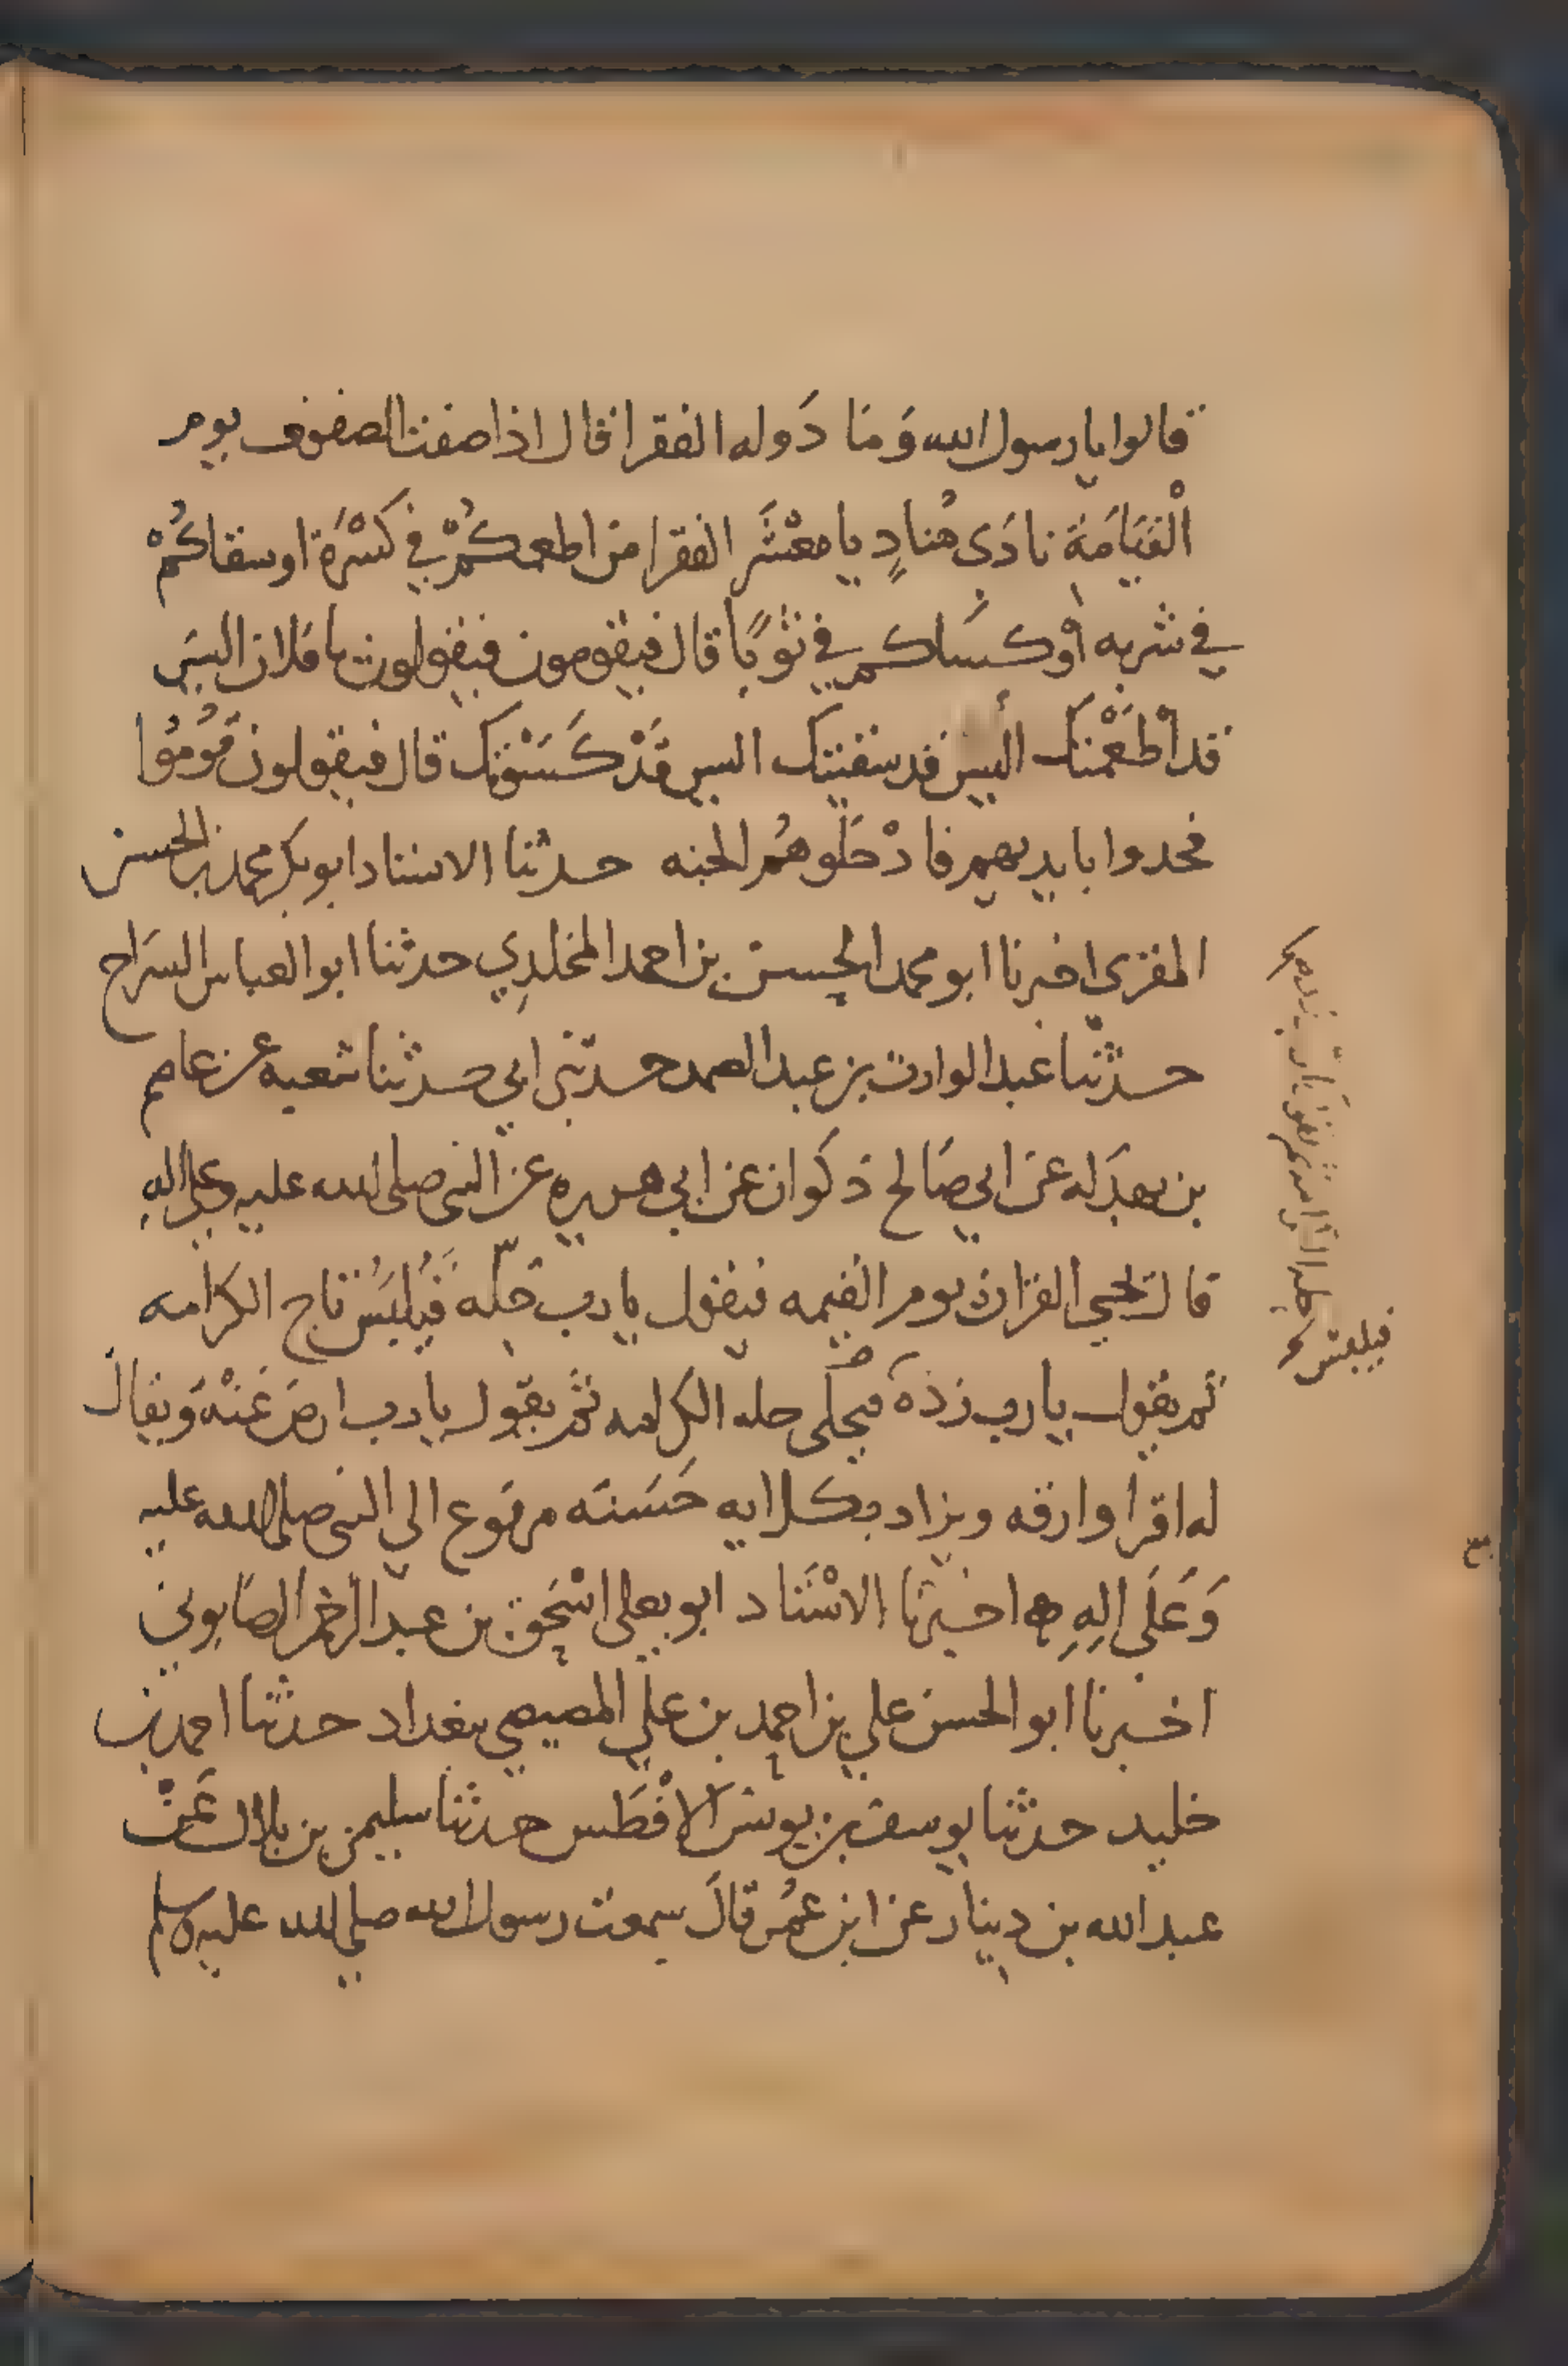 قالوا يا رسول الله وَمَا دَوله الفقرا قال اذا صفت الصفوف يوم
الْقيَامَةِ نادَى مُنادٍ يا معْشَر الفقرا من اطعمكُمْ في كَسْرَة او سقاكُمْ
في شربه أوكساكم في ثوبًا قال فيقومون فيقولون يا فلان اليس
قد أطْعَمْتك أليس قد سقيتك اليس قَدْ كَسَوْتك قال فيقولون قُومُوا
فخدوا بايديهم فادْخلوهُم الجنه حدثنا الاستاد ابو بكر محمد بن الحسن
المقرى اخبرنا ابو محمد الحسن بن احمد المخلدِي حدثنا ابو العباس السراج
حدثنا عبد الوارث بن عبد الصمد حدثنى ابي حدثنا شعبه عن عاصم
بن بهدَله عن ابي صَالح ذكوان عن ابي هريره عن النبى صلى الله عليه وعلى اله
قال تجي القران يوم القيمه فيقول يا رب حَلّه فَيُلبَسُ تاج الكرامه
ثم يقول يا رب زدْه فيحلى حله الكرامه ثم يقول يا رب ارض عَنْهُ ويقال
له اقرا وارقه ويزاد بكل ايه حَسَنَه مرفوع الي النبى صلى الله عليه
وَعَلَى الِهِ ه اخبرنا الاسْتَاد ابو يعلى اسْحَق بن عبد الرحمن الصابوني
اخبرنا ابو الحسن علي بن احمد بن علي المصيصي ببغداد حدثنا احمد بن
خليد حدثنا يوسف بن يونس الافْطَس حدثنا سليمن بن بلال عَنْ
عبد الله بن دينار عن ابن عُمر قالَ سمعت رسول الله صلى الله عليه وسلم
فيلبس
حله الكرامه ثم يقول يا رب زده صح